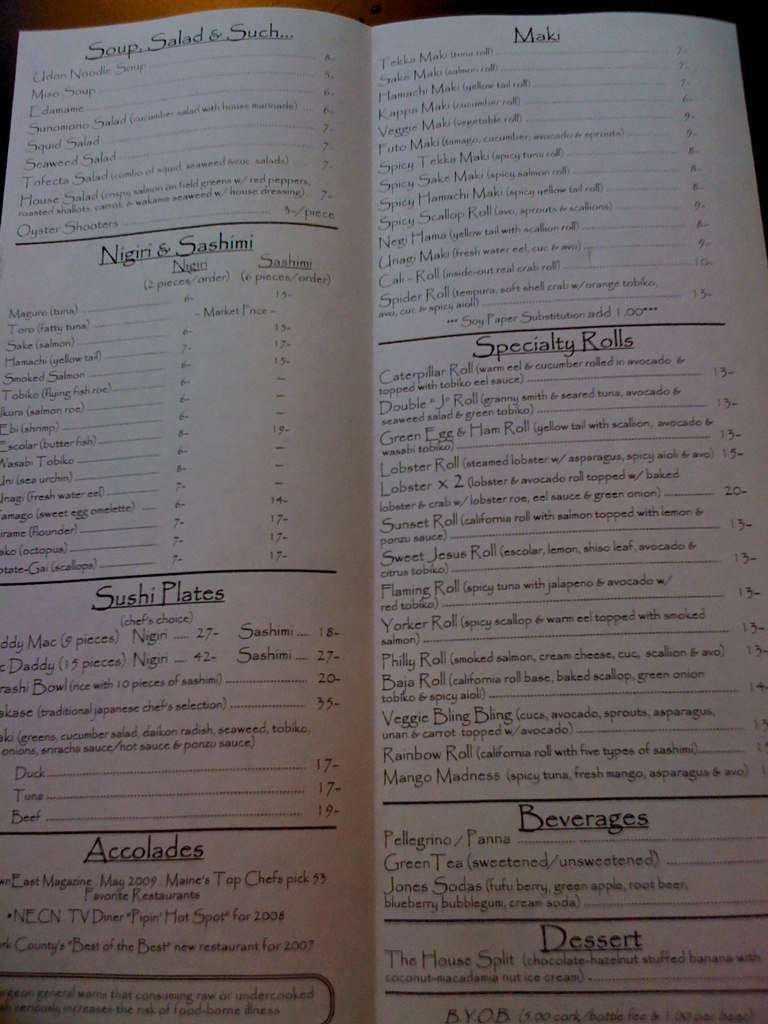 Soup, Salad & Such...
Udon Noodle Soup 8-
Miso Soup 5-
Edamame 6-
Sunomono Salad (cucumber salad with house marinade) 6-
Squid Salad 7-
Seaweed Salad 7-
Trifecta Salad (combo of squid, seaweed & cuc. salads) 7-
House Salad (crispy salmon on field greens w/ red peppers,
roasted shallots, carrot, & wakame seaweed w/ house dressing) 7-
Oyster Shooters 3-/piece
Nigiri & Sashimi
Nigiri Sashimi
(2 pieces/order) (6 pieces/order)
Maguro (tuna) 6- 15-
Toro (fatty tuna) - Market Price -
Sake (salmon) 6- 15-
Hamachi (yellow tail) 7- 17-
Smoked Salmon 6- 15-
Tobiko (flying fish roe) 6- —
Ikura (salmon roe) 6- —
Ebi (shrimp) 6- —
Escolar (butter fish) 8- 19-
Wasabi Tobiko 6- —
Uni (sea urchin) 8- —
Unagi (fresh water eel) 7- —
Tamago (sweet egg omelette) 6- 14-
irame (flounder) 7- 17-
ako (octopus) 7- 17-
otate-Gai (scallops) 7- 17-
Sushi Plates
(chef's choice)
ddy Mac (9 pieces) Nigiri .... 27- Sashimi .... 18-
c Daddy (15 pieces) Nigiri .... 42- Sashimi .... 27-
rashi Bowl (rice with 10 pieces of sashimi) 20-
akase (traditional japanese chef's selection) 35-
aki (greens, cucumber salad, daikon radish, seaweed, tobiko,
onions, sriracha sauce/hot sauce & ponzu sauce)
Duck 17-
Tuna 17-
Beef 19-
Accolades
wnEast Magazine May 2009 Maine's Top Chefs pick 53
Favorite Restaurants
•NECN TV Diner "Pipin' Hot Spot" for 2008
rk County's "Best of the Best" new restaurant for 2007
rgeon general warns that consuming raw or undercooked
sh seriously increases the risk of food-borne illness
Maki
Tekka Maki (tuna roll) 7-
Sake Maki (salmon roll) 7-
Hamachi Maki (yellow tail roll) 7-
Kappa Maki (cucumber roll) 6-
Veggie Maki (vegetable roll) 9-
Futo Maki (tamago, cucumber, avocado & sprouts) 9-
Spicy Tekka Maki (spicy tuna roll) 8-
Spicy Sake Maki (spicy salmon roll) 8-
Spicy Hamachi Maki (spicy yellow tail roll) 8-
Spicy Scallop Roll (avo, sprouts & scallions) 9-
Negi Hama (yellow tail with scallion roll) 8-
Unagi Maki (fresh water eel, cuc & avo) 9-
Cali - Roll (inside-out real crab roll) 10-
Spider Roll (tempura, soft shell crab w/orange tobiko,
avo, cuc & spicy aioli) 13-
*** Soy Paper Substitution add 1.00***
Specialty Rolls
Caterpillar Roll (warm eel & cucumber rolled in avocado &
topped with tobiko eel sauce) 13-
Double "J" Roll (granny smith & seared tuna, avocado &
seaweed salad & green tobiko) 13-
Green Egg & Ham Roll (yellow tail with scallion, avocado &
wasabi tobiko) 13-
Lobster Roll (steamed lobster w/ asparagus, spicy aioli & avo) 15-
Lobster x 2 (lobster & avocado roll topped w/ baked
lobster & crab w/ lobster roe, eel sauce & green onion) 20-
Sunset Roll (california roll with salmon topped with lemon &
ponzu sauce) 13-
Sweet Jesus Roll (escolar, lemon, shiso leaf, avocado &
citrus tobiko) 13-
Flaming Roll (spicy tuna with jalapeno & avocado w/
red tobiko) 13-
Yorker Roll (spicy scallop & warm eel topped with smoked
salmon) 13-
Philly Roll (smoked salmon, cream cheese, cuc, scallion & avo) 13-
Baja Roll (california roll base, baked scallop, green onion
tobiko & spicy aioli) 14-
Veggie Bling Bling (cucs, avocado, sprouts, asparagus,
unan & carrot topped w/avocado) 13
Rainbow Roll (california roll with five types of sashimi)
Mango Madness (spicy tuna, fresh mango, asparagus & avo)
Beverages
Pellegrino / Panna
Green Tea (sweetened/unsweetened)
Jones Sodas (fufu berry, green apple, root beer,
blueberry bubblegum, cream soda)
Dessert
The House Split (chocolate-hazelnut stuffed banana with
coconut-macadamia nut ice cream)
B.Y.O.B. (5.00 cork/bottle fee & 1.00 per beer)